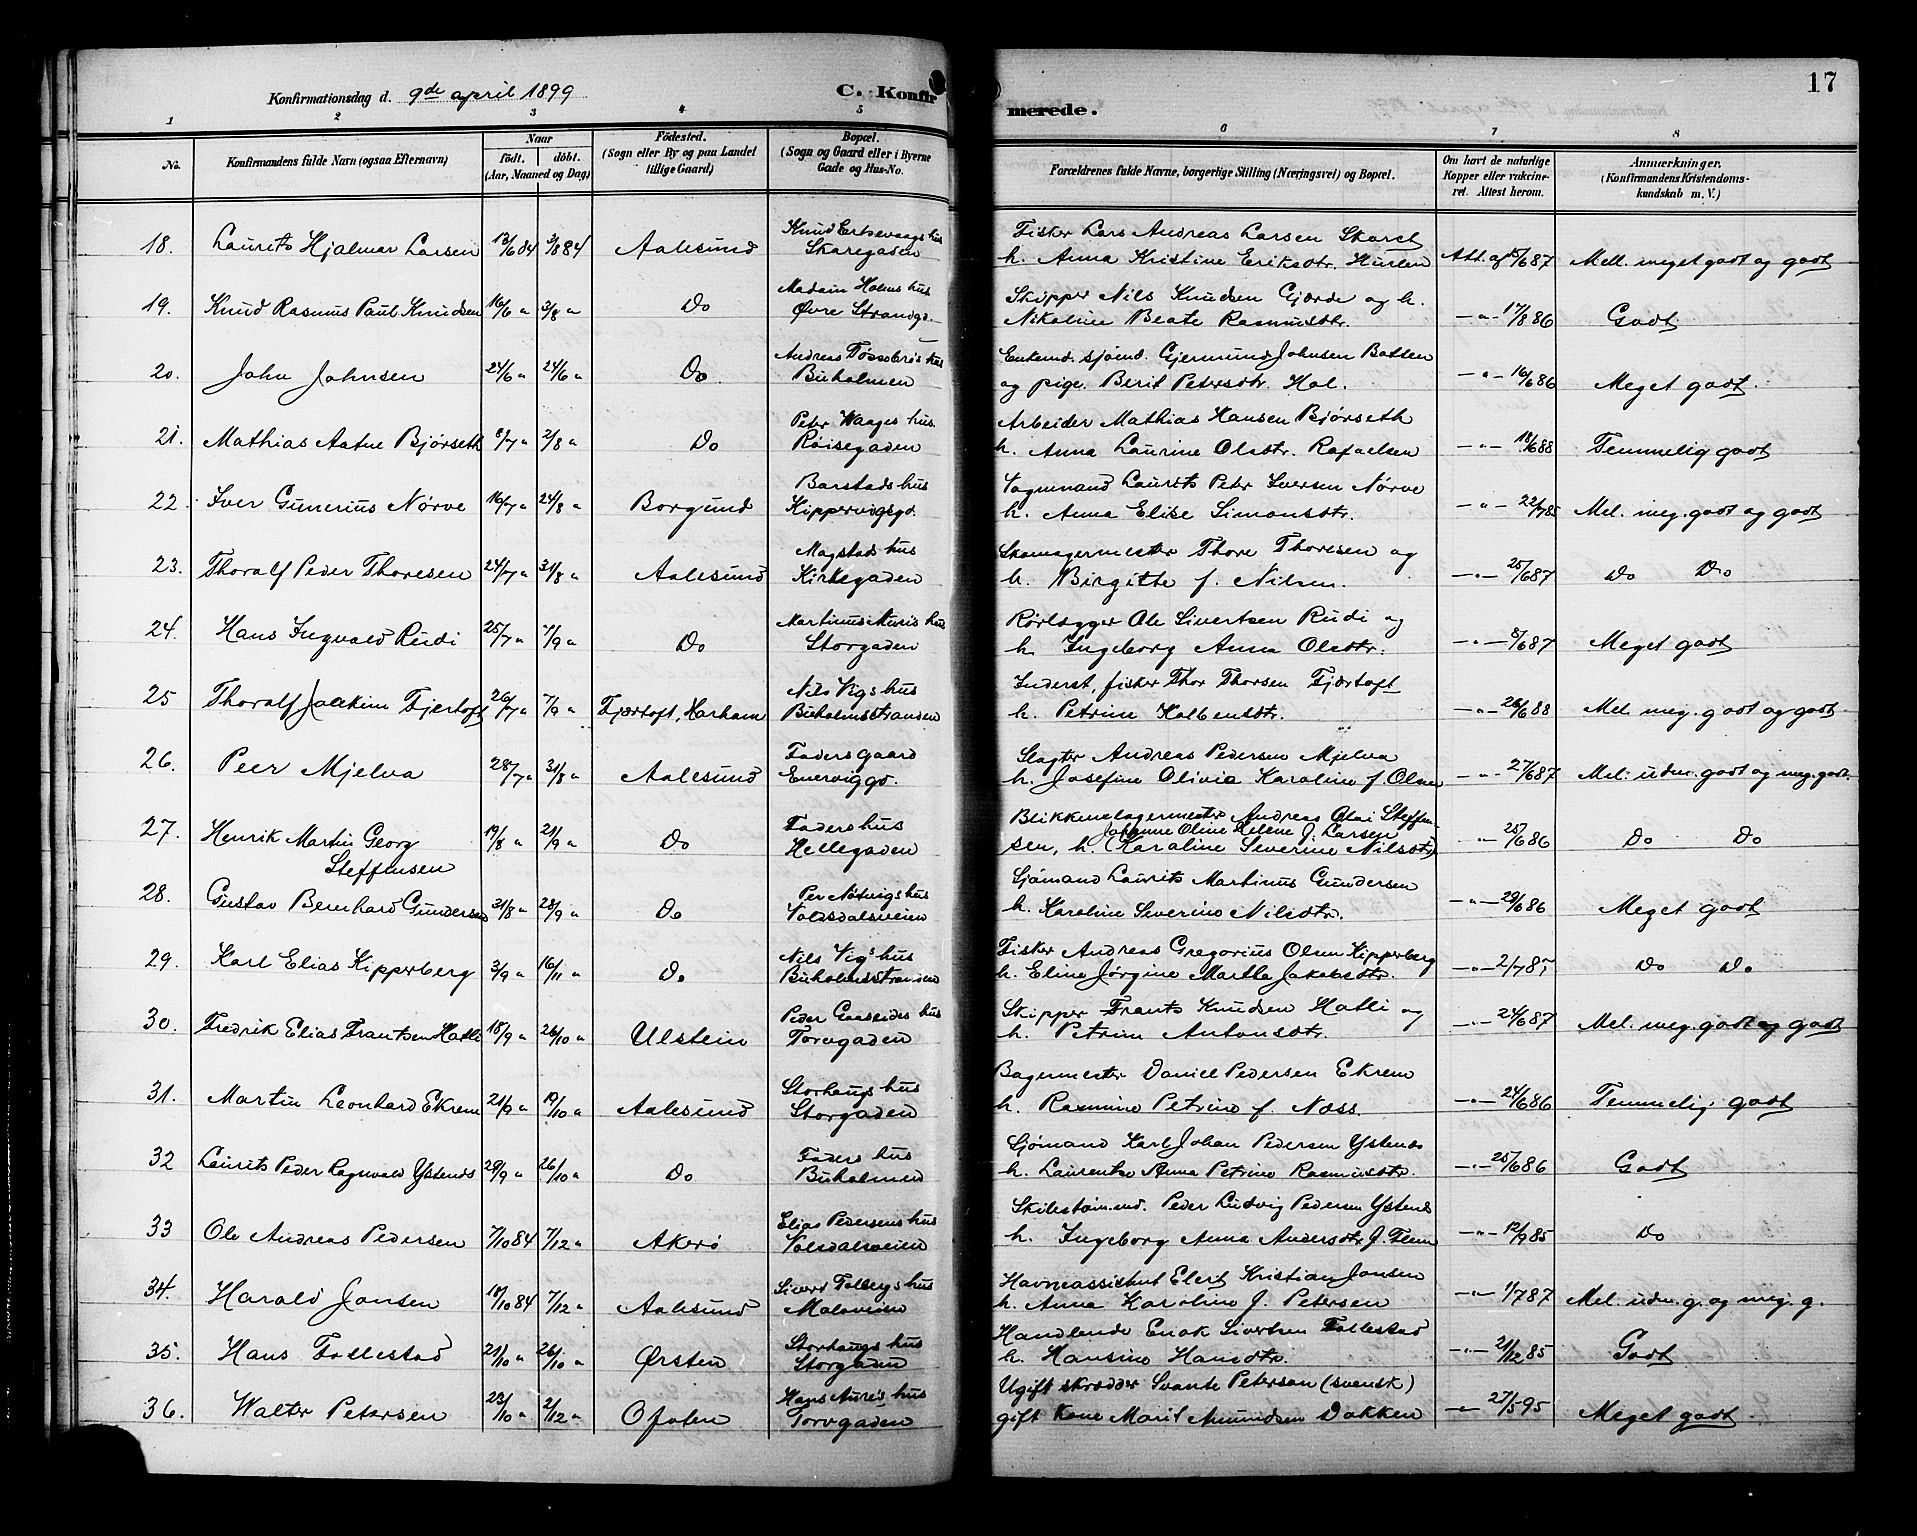 17
Konfirmationsdag d. 9de april 1899
C. Konfir
merede.
1 2 3 4 5 6 7 8
No.
Konfirmandens fulde Navn (ogsaa Efternavn)
Naar
født. døbt.
(Aar, Maaned og Dag)
Fødested.
(Sogn eller By og paa Landet
tillige Gaard)
Bopæl.
(Sogn og Gaard eller i Byerne
Gade og Hus-No.
Forældrenes fulde Navne, borgerlige Stilling (Næringsvei) og Bopæl.
Om havt de naturlige
Kopper eller vakcine-
ret. Attest herom.
Anmærkninger.
(Konfirmandens Kristendoms-
kundskab m. V.)
18. Laurits Hjalmar Larsen 13/6 84 3/8 84 Aalesund
hus
Skaregaden
Fisker Lars Andreas Larsen Skaret
h. Anna Kristine Eriksdtr. Hurlen
Att. af 15/6 87 Mell. meget godt og godt
19. Knud Rasmus Paul Knudsen 16/6 " 3/8 " Do
Madam Holms hus
Øvre Strandgd.
Skipper Nils Knudsen Gjærde og h.
Nikoline Beate Rasmusdtr.
—"— 17/8 86 Godt
20. John Johnsen 24/6 " 24/6 " Do
Andreas hus
Buholmen
Enkemd. sjømd. Gjermund Johnsen Batten
og pige. Berit Petersdtr. Hol.
—"— 16/6 86 Meget godt.
21. Mathias Aatne Bjørseth 8/7 " 2/8 " Do
Peter Waages hus.
Røisegaden
Arbeider Mathias Hansen Bjørseth
h. Anna Laurine Olsdtr. Rafaelsen
—"— 18/6 88 Temmelig godt
22. Iver Gunerius Nørve 16/7 " 24/8 " Borgund
Barstads hus
Kippervigsgd.
Vognmand Laurits Peter Iversen Nørve
h. Anna Elise Simonsdtr.
—"— 22/7 85 Mel. meg. godt og godt
23. Thoralf Peder Thoresen 24/7 " 31/8 " Aalesund
Magstads hus
Kirkegaden
Skomagermester Thore Thoresen og
h. Birgitte f. Nilsen.
—"— 25/6 87 Do Do
24. Hans Ingvald Rudi 25/7 " 7/9 " Do
Martinus hus
Storgaden
Rørlægger Ole Sivertsen Rudi og
h. Ingeborg Anna Olsdtr.
—"— 8/6 87 Meget godt
25 Thoralf Joakim Fjertoft 26/7 " 7/9 " Fjærtoft, Harham
Nils Vigs hus
Buholmsstranden
Inderst, fisker Thor Thorsen Fjærtoft
h. Petrine Kolbensdtr.
—"— 26/6 88 Mel. meg. godt og godt
26. Peer Mjelva 28/7 " 31/8 " Aalesund
Faders Gaard
Enerviggd.
Slagter Andreas Pedersen Mjelva
h. Josefine Olivia Karoline f. Olsen
—"— 27/6 87 Mel. udm. godt og meg. godt.
27. Henrik Martin Georg
Steffensen
19/8 " 21/9 " Do
Faders hus
Hellegaden
Blikkenslagermester Andreas Olai Steffen-
Johanne Oline Helene f. Larsen
sen, h. (Karoline Severine Nilsdtr)
—"— 25/6 86 Do Do
28. Gustav Bernhard Gundersen 31/8 " 28/9 " Do
Per Nøtvigs hus
Volsdalsveien
Sjømand Laurits Martinus Gundersen
h. Karoline Severine Nilsdtr.
—"— 29/6 86 Meget godt
29. Karl Elias Kipperberg 3/9 " 16/11 " Do
Nils Vigs hus
Buholmsstranden
Fisker Andreas Gregorius Olsen Kipperberg
h. Eline Jørgine Martha Jakobsdtr.
—"— 2/7 87 Do Do
30. Fredrik Elias Frantsen Hatli 18/9 " 26/10 " Ulstein
Peder hus
Torvgaden
Skipper Frants Knudsen Hatli og
h. Petrine Antonsdtr.
—"— 24/6 87 Mel. meg. godt og godt
31. Martin Leonhard Ekrem 21/9 " 19/10 " Aalesund
Storhaugs hus
Storgaden
Bagermester Daniel Pedersen Ekrem
h. Rasmine Petrine f. Næss.
—"— 24/6 86 Temmelig godt
32 Laurits Peder Ragnvald Ystenes 29/9 " 26/10 " Do
Faders hus
Buholmen
Sjømand Karl Johan Pedersen Ystenes
h. Laurentse Anna Petrine Rasmusdtr.
—"— 25/6 86 Godt
33 Ole Andreas Pedersen 7/10 84 7/12 " Akerø
Elias Pedersens hus
Volsdalsveien
Peder Ludvig Pedersen Ystenes
h. Ingeborg Anna Andersdtr. f. Flem
—"— 12/9 85 Do
34. Harald Jansen 18/10 84 7/12 " Aalesund
Sivert hus
Moloveien
Havneassistent Elert Kristian Jansen
h. Anna Karoline f. Petersen
—"— 1/7 87 Mel. udm. g. og meg. g.
35. Hans Follestad 21/10 " 26/10 " Ørsten
Storhaugs hus
Storgaden
Handlende Enok Sivertsen Follestad
h. Hansine Hansdtr.
—"— 21/12 85 Godt
36. Walter Petersen 23/10 " 2/12 " Ofoten
Hans hus
Torvgaden
Ugift skrædder Svante Peterson (svensk)
gift Kone Marit Amundsen Dokken
—"— 27/5 95 Meget godt.